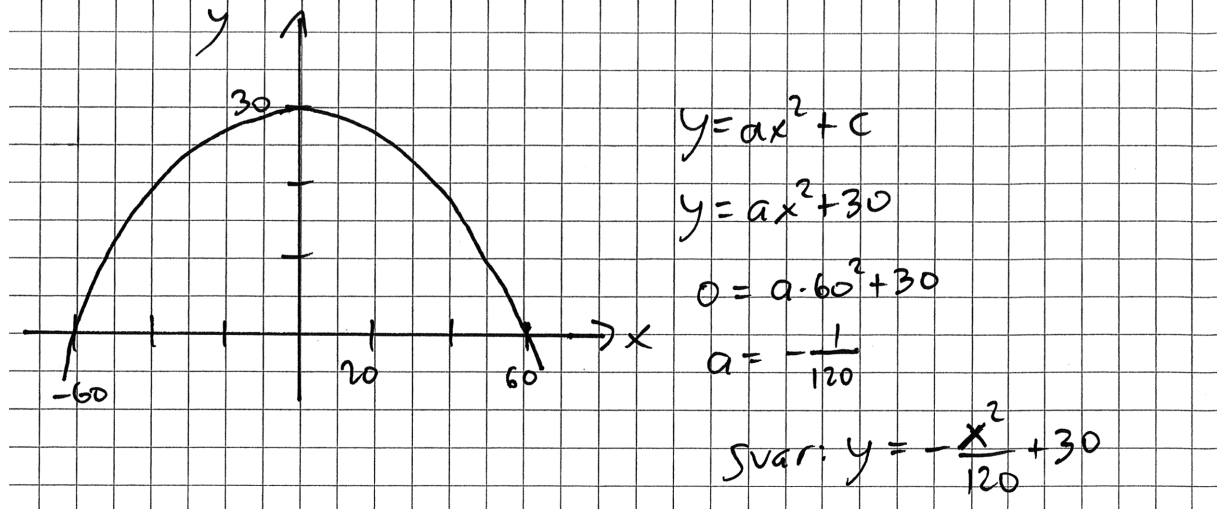 y
30
x
-60
20
60
y = ax² + c
y = ax² + 30
0 = a·60² + 30
a = -1/120
svar: y = -x²/120 + 30